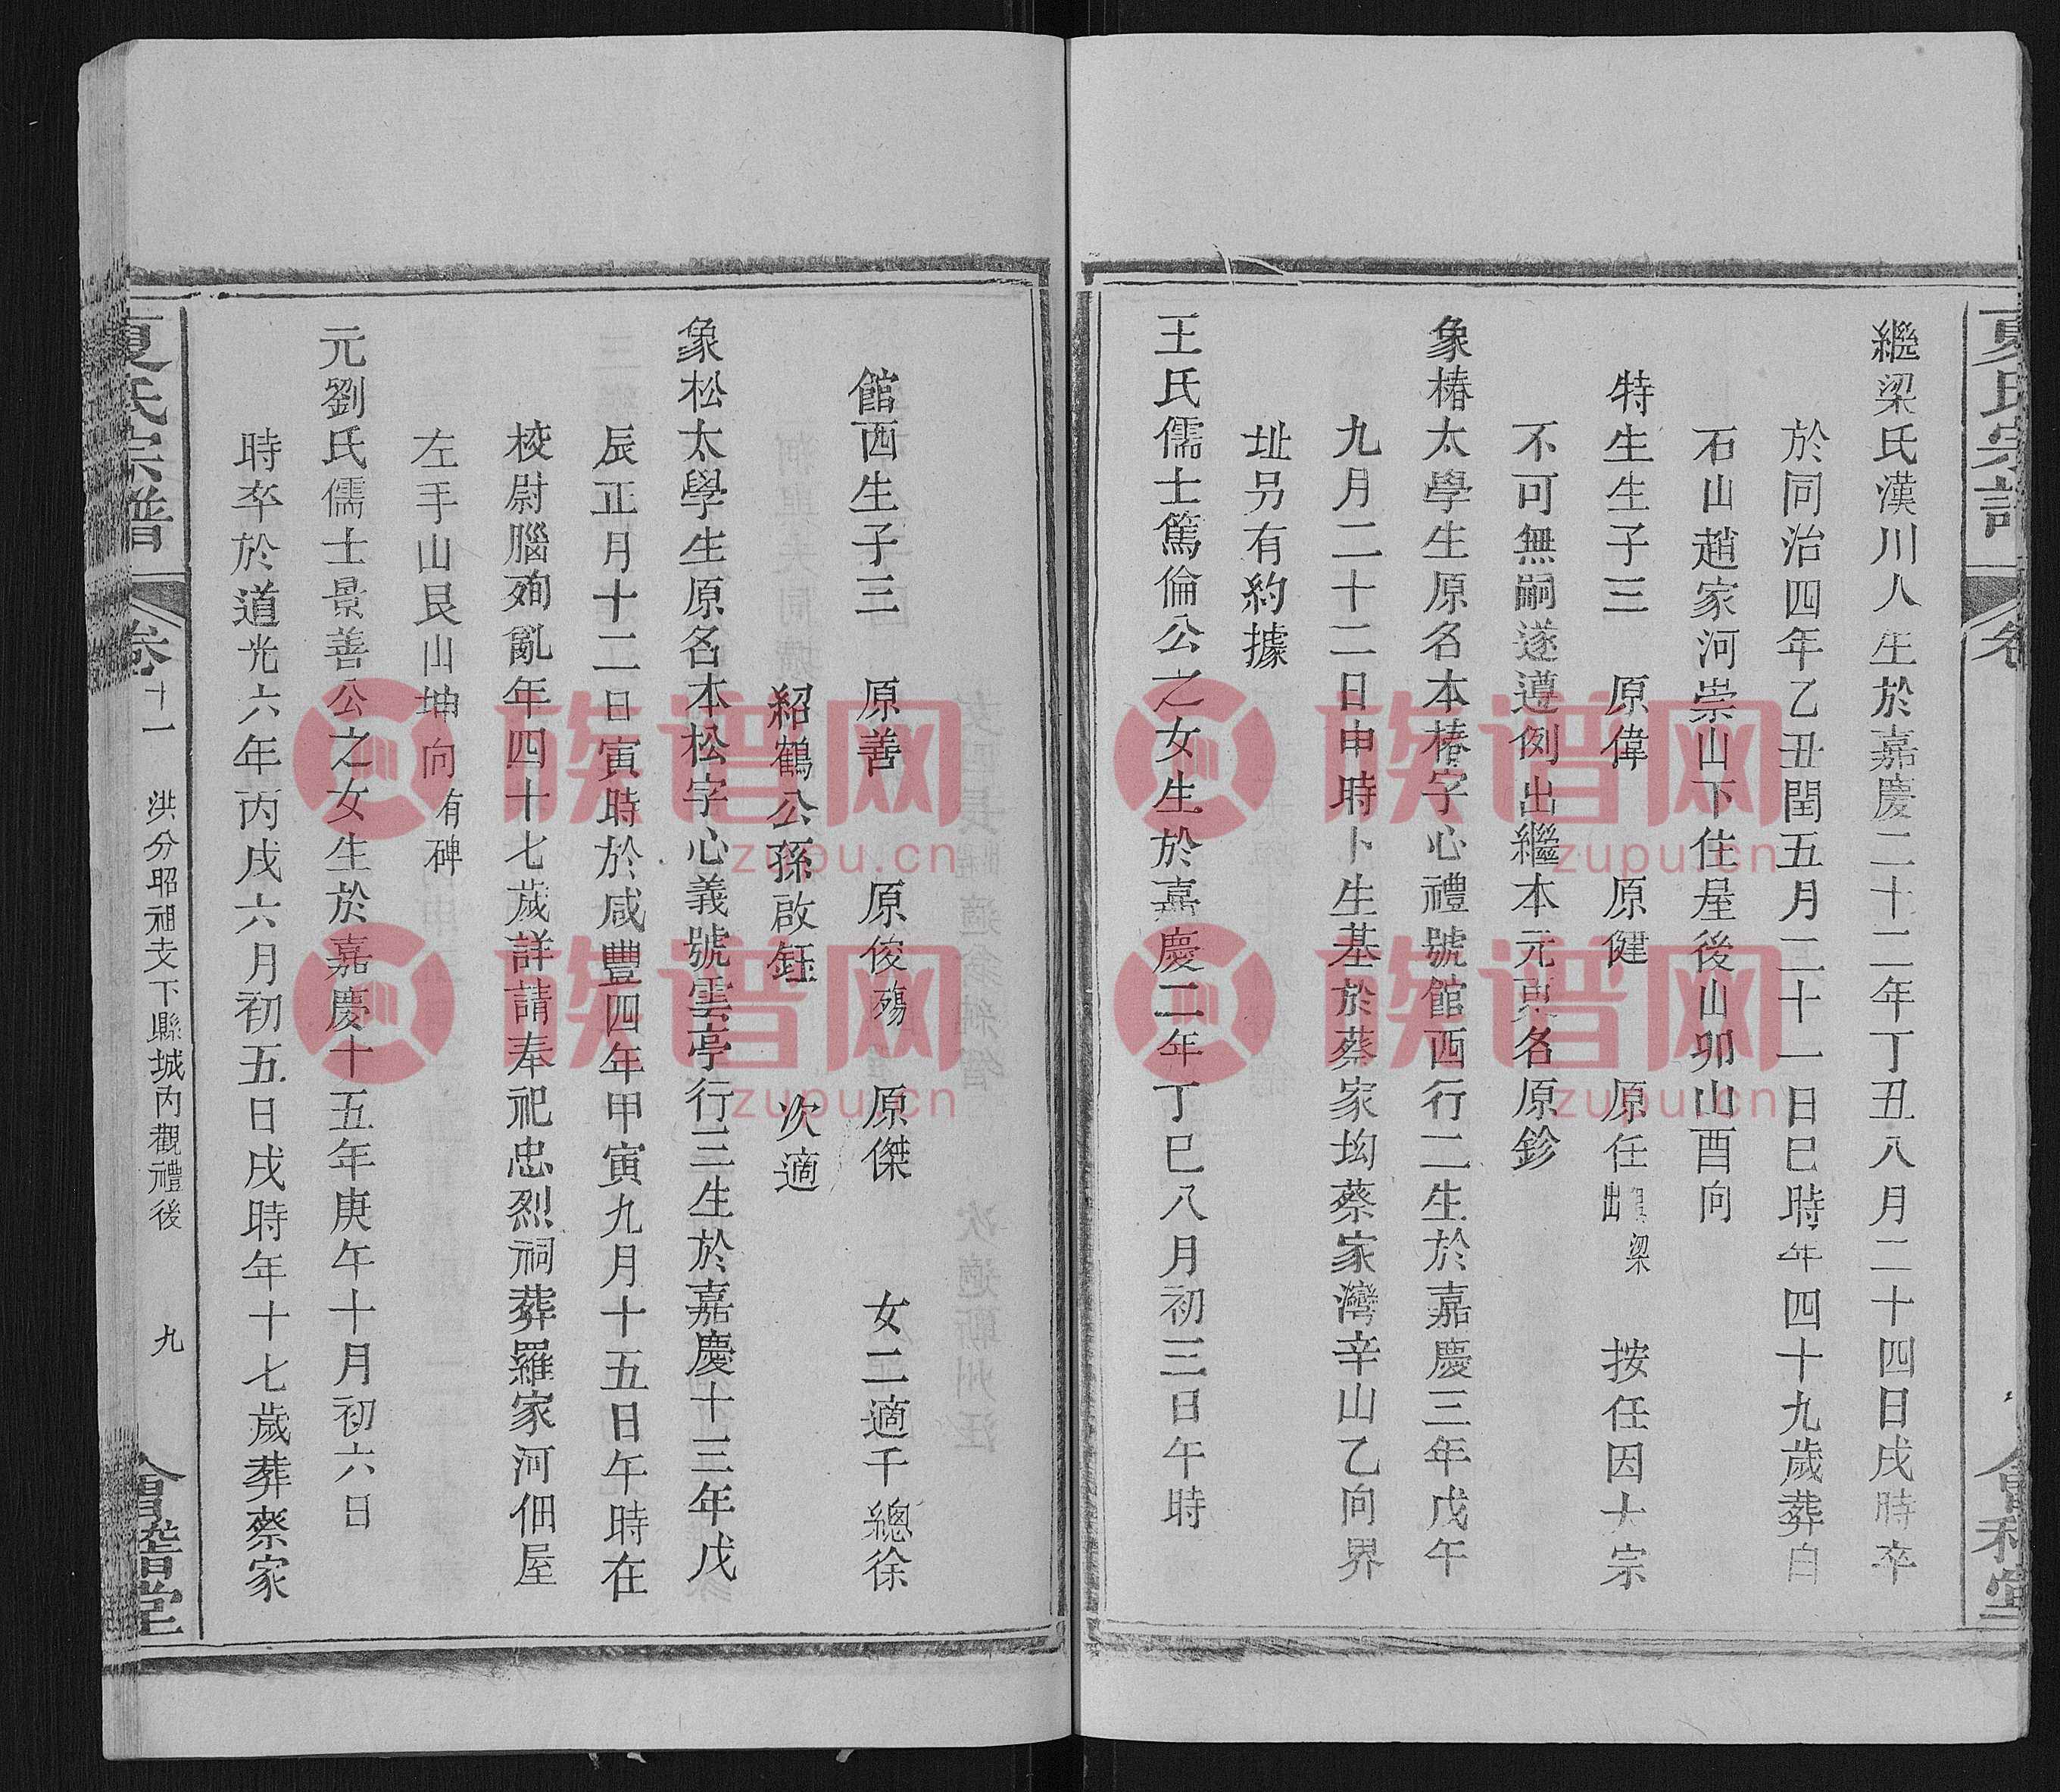 夏氏宗譜
卷
繼梁氏漢川人生於嘉慶二十二年丁丑八月二十四日戌時卒
於同治四年乙丑閏五月二十一日巳時年四十九歲葬白
石山趙家河崇山下住屋後山卯山酉向
特生生子三　原偉　原健　原任出繼梁　按任因大宗
不可無嗣遂遵例出繼本元東名原鉁
象椿太學生原名本椿字心禮號館西行二生於嘉慶三年戊午
九月二十二日申時卜生基於蔡家坳蔡家灣辛山乙向界
址另有約據
王氏儒士篤倫公之女生於嘉慶二年丁巳八月初三日午時
館西生子三　原善　原俊殤　原傑　女二適千總徐
紹鶴公孫啟鈺　次適
象松太學生原名本松字心義號雲亭行三生於嘉慶十三年戊
辰正月十二日寅時於咸豐四年甲寅九月十五日午時在
校尉腦殉亂年四十七歲詳請奉祀忠烈祠葬羅家河佃屋
左手山艮山坤向有碑
元劉氏儒士景善公之女生於嘉慶十五年庚午十月初六日
時卒於道光六年丙戌六月初五日戌時年十七歲葬蔡家
夏氏宗譜
卷十一　洪分昭祖支下縣城內觀禮後　九
會稽堂
族谱网
zupu.cn
族谱网
zupu.cn
族谱网
zupu.cn
族谱网
zupu.cn